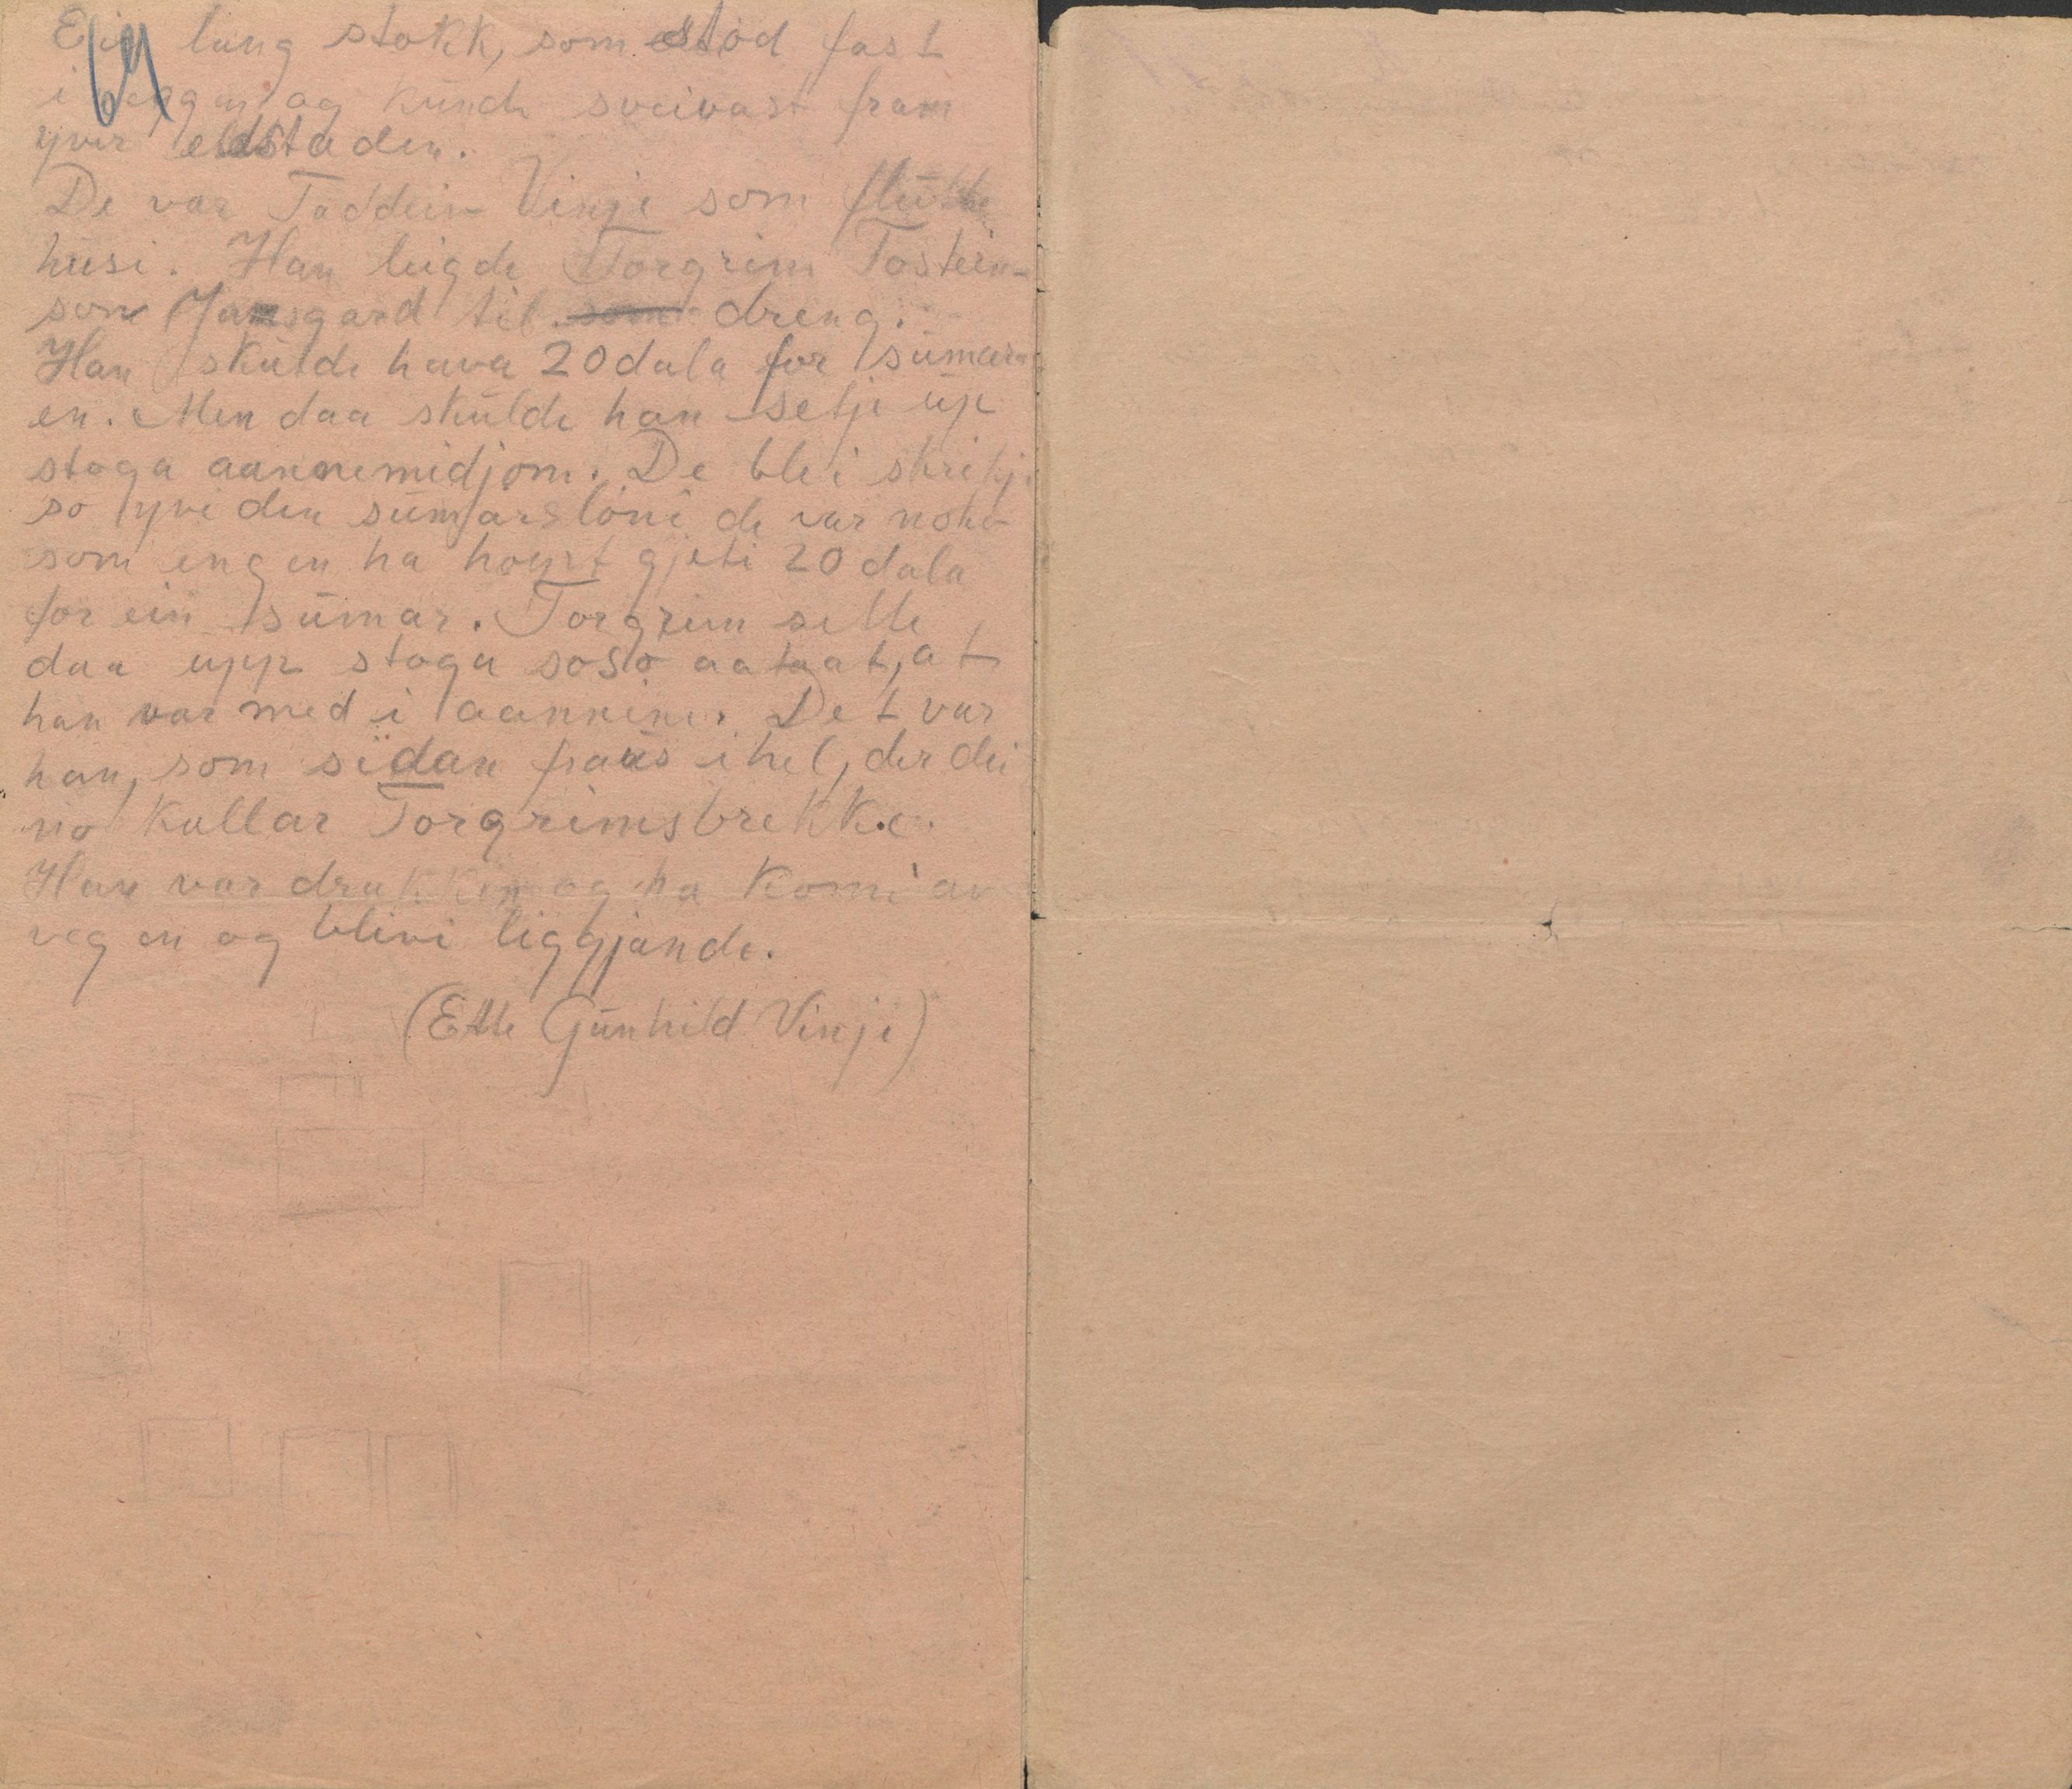 Ein lang stokk, som stod fast
i veggen og künde sveivast fram
yver eldstaden.
De var Taddein Vinje som flütte
hüsi. Han leigde Torgrim Tostein-
son Jamsgard til som dreng.
Han skülde hava 20 dala for sümar-
en. Men daa skülde han setje üp
stoga aannemidjom. De blei skrikje
so yve den sümarsløni de var noko
som engen ha høyrt gjeti 20 dala
for ein sümar. Torgrim sette
daa upp stoga soslo aataat, at
han var med i aannine. Det var
han, som sidan fraus ihel, der dei
no kallar Torgrimsbrekke.
Han var drukken og ha komi av
vegen og blivi liggjande.
(Ette Günhild Vinje)